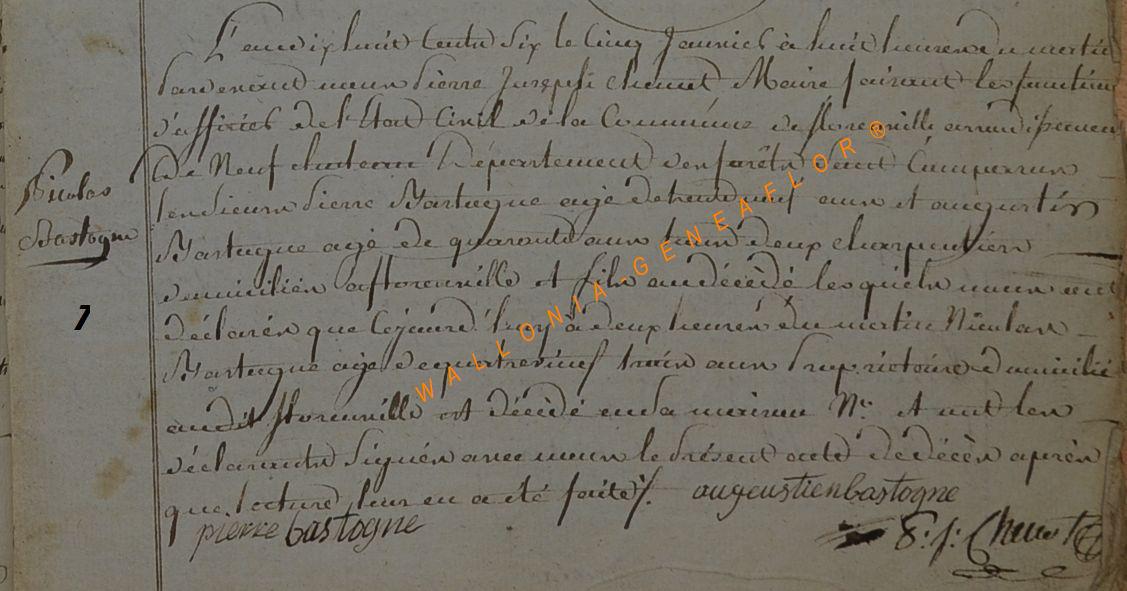 L'an dix huit Cents Six le Cinq Janvier à huit heures du matin
pardevant nous Pierre Joseph Chenot Maire faisant les fonctions
d'officier de l'Etat Civil de la Commune de florenville arrondissement
De Neufchateau Département des forêts sont Comparus
les sieurs Pierre Bastogne agé de trente neuf ans et augustin
Bastogne agé de quarante ans tous deux charpentiers
domiciliés a florenville et fils au décédé lesquels nous ont
déclarés que Cejourd'huy à deux heures du matin Nicolas
Bastogne agé de quatrevingt ans Proprietaire domicilié
audit florenville est décédé en sa maison N.° et ont les
déclarants Signés avec nous le Présent acte de décès après
que lecture leur en a été faite ./.
augeustien bastogne
pierre bastogne
P: J: Chenot
Nicolas
Bastogne
1
WALLONIA-GENEAFLOR ®